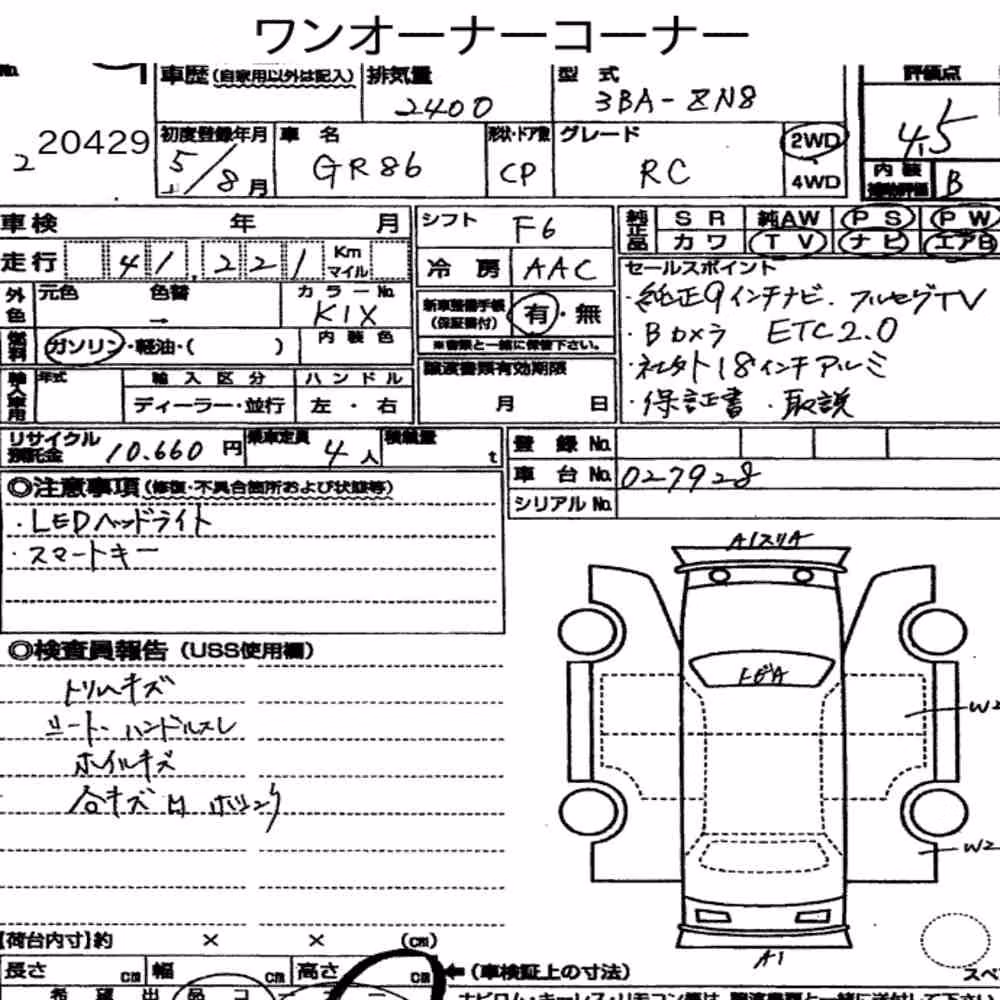 ワンオーナーコーナー
No.
車歴 (自家用以外は記入) 排気量 型式 評価点
2400 3BA-ZN8 4.5
2 20429 初度登録年月 車名 形状・ドア数 グレード 2WD
5/8月 GR86 CP RC 4WD
内装 B
車検 年 月 シフト F6 純正品 SR 純AW PS PW
カワ TV ナビ エアB
走行 41,221 Km マイル 冷房 AAC セールスポイント
外色 元色 色替 カラーNo. 新車整備手帳(保証書付) 有・無 ・純正9インチナビ、フルセグTV
→ K1X ・Bカメラ ETC2.0
燃料 ガソリン・軽油・( ) 内装色 ※書類と一緒に保管下さい。 ・社外18インチアルミ
輸入車用 年式 輸入区分 ハンドル 譲渡書類有効期限 ・保証書 ・取説
ディーラー・並行 左・右 月 日
リサイクル預託金 10.660円 乗車定員 4人 積載量 t 登録No.
車台No. 027928
シリアルNo.
◎注意事項 (修復・不具合箇所および状態等)
・LEDヘッドライト
・スマートキー
A1スリA
◎検査員報告 (USS使用欄)
トリムキズ
シート・ハンドルスレ
トビA
W2
ホイルキズ
W2
A1
【荷台内寸】約 × × (cm)
長さ cm 幅 cm 高さ cm ←(車検証上の寸法)
スペ
希望出品コーナー